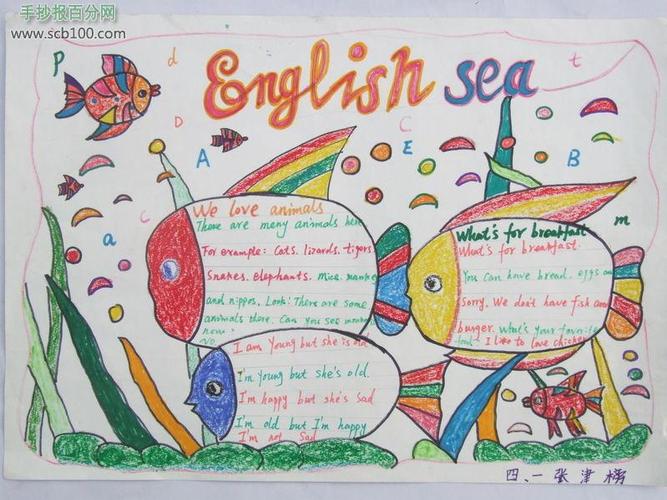 手抄报百分网
www.scb100.com
English sea
P
d
t
D
A
C
E
B
a
c
m
We love animals
There are meny animals here
For example: Cats. lizards. tigers
Snakes. elephants. Mice.
and nippos. Look! There are some
animals there. Can you see
now?
No.
What's for breakfast
What's for breakfast.
You can have bread. eggs
Sorry. We don't have fish
burger. What's your favorite
food? I like to love chicken
I am Young but she is old
I'm young but she's old.
I'm happy but she's Sad
I'm old but I'm happy
I'm not Sad
四、一 张津榜